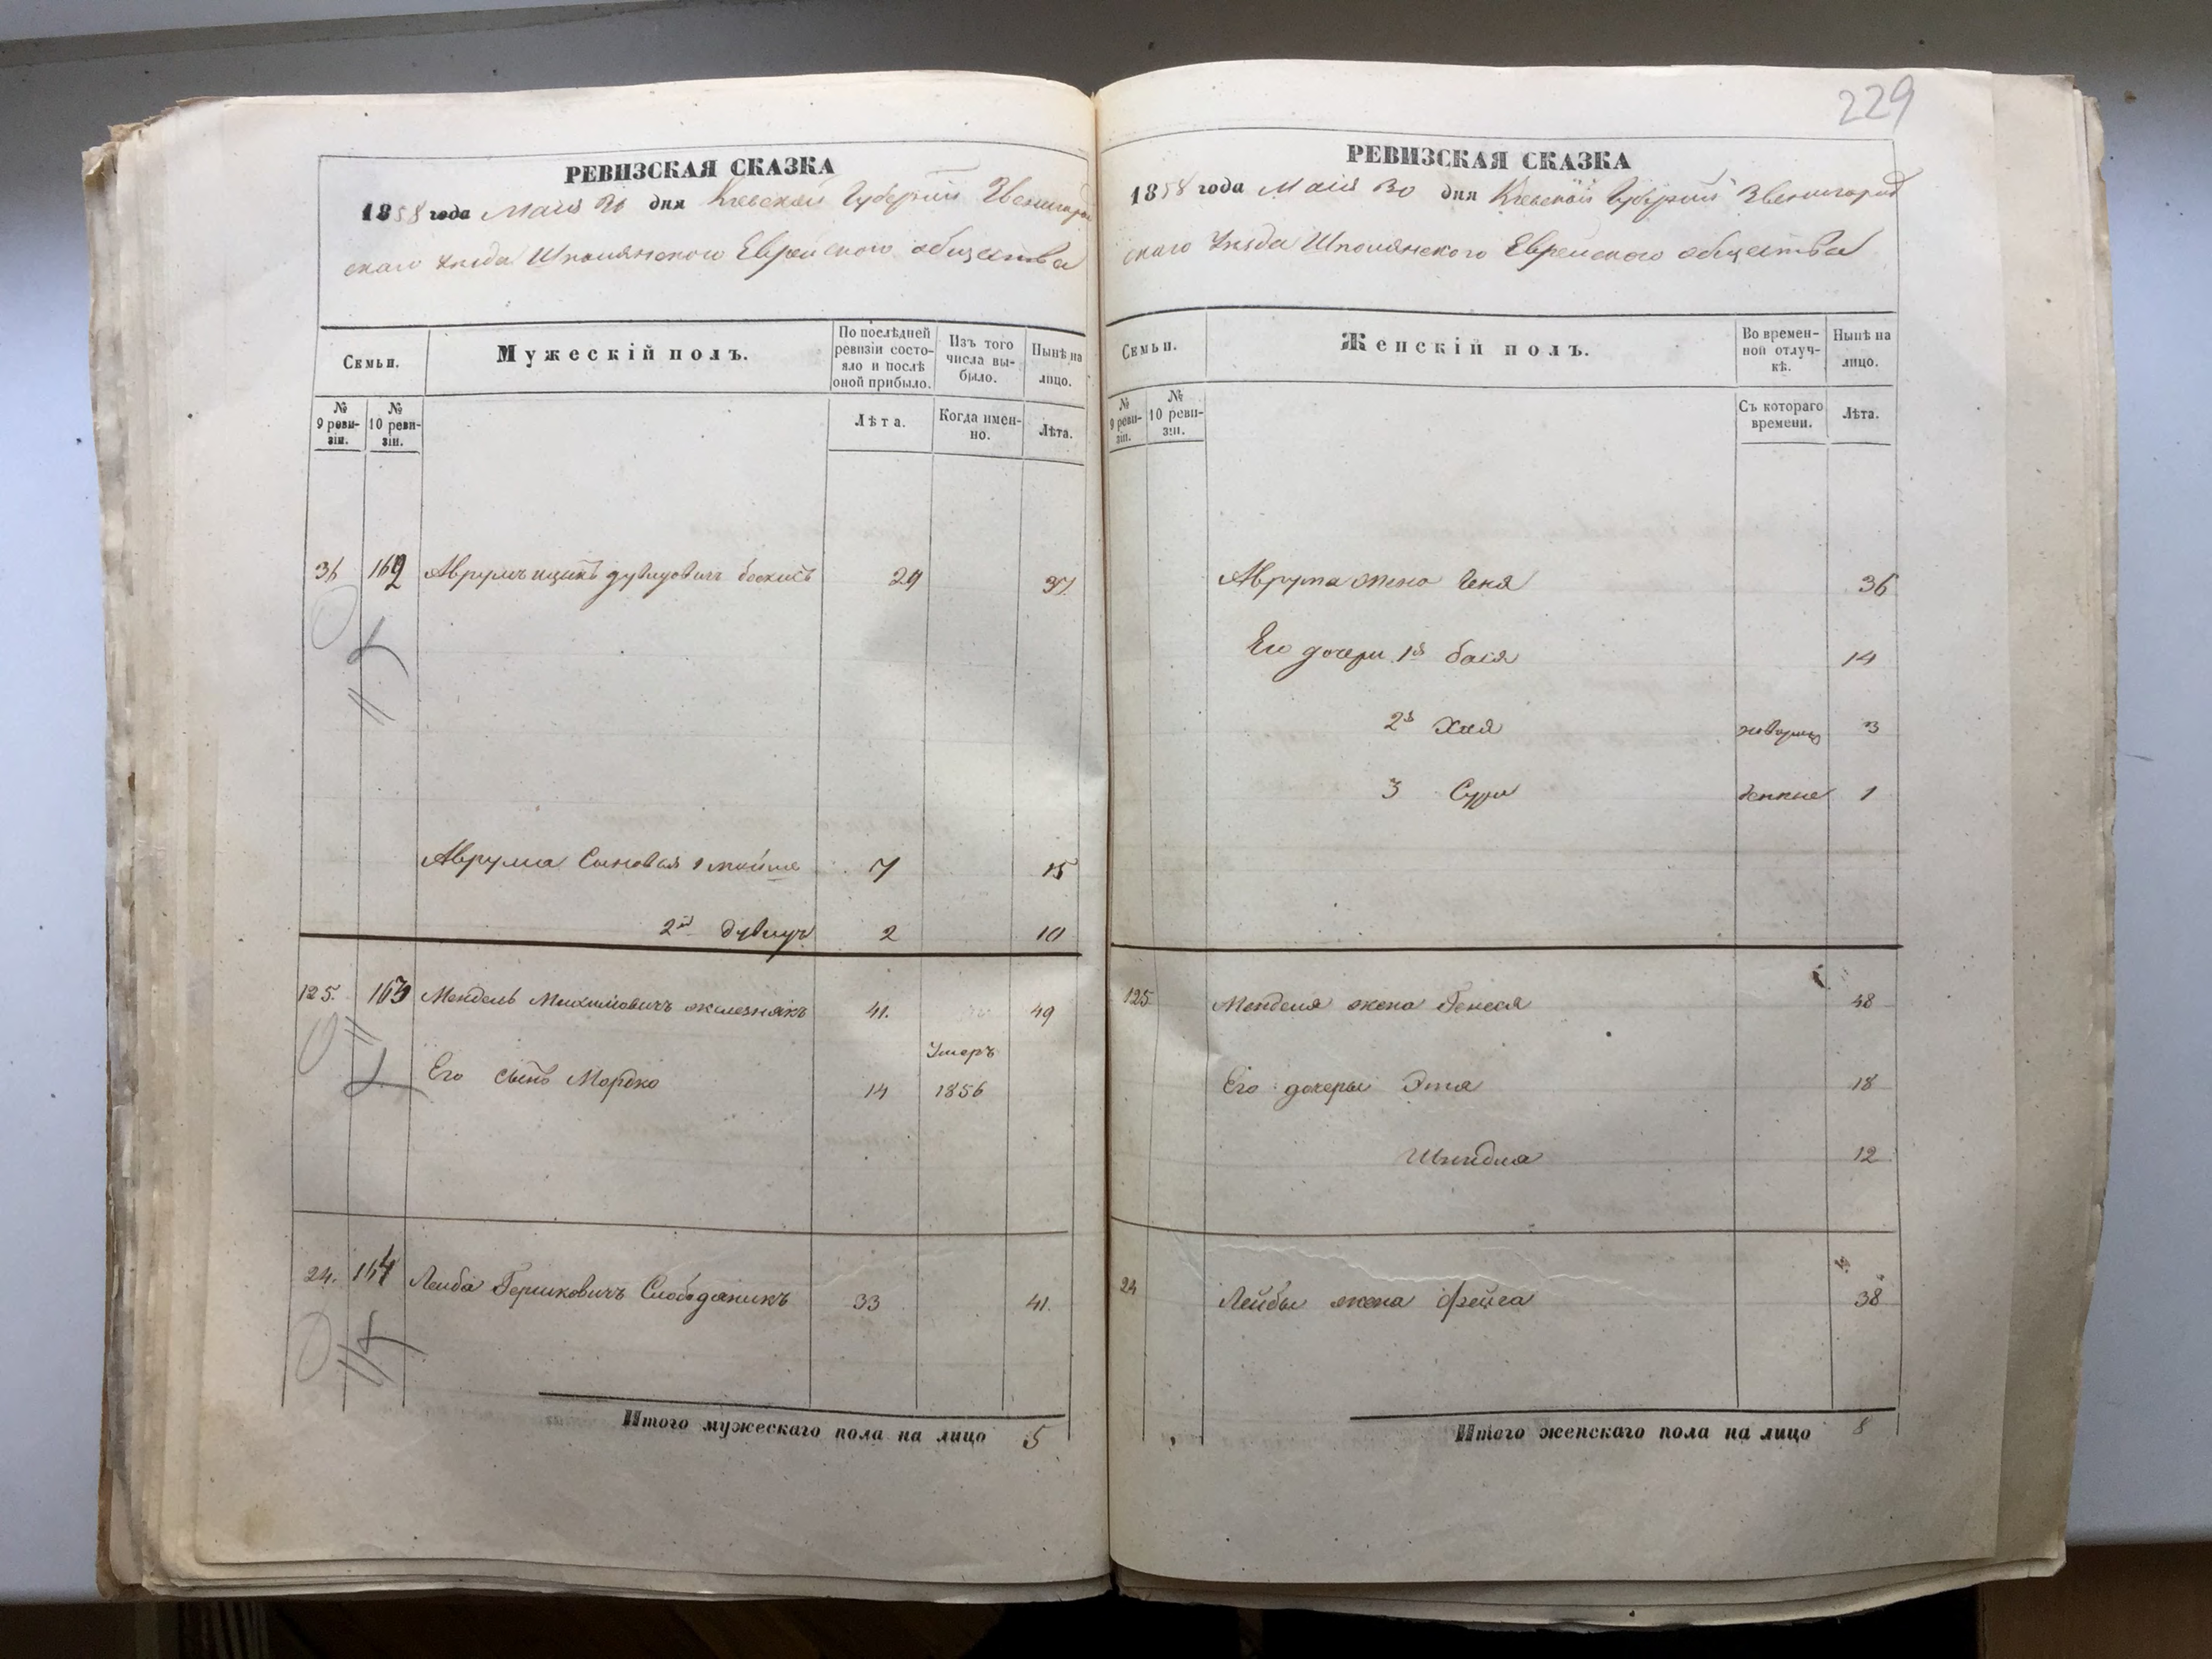 229
РЕВИЗСКАЯ СКАЗКА
1858 года Мая 30 дня Киевской Губернии Звенигород
скаго Уѣзда Шполянского Еврейского общества
Семьи.
Мужескій полъ.
По послѣдней ревизіи состояло и послѣ оной прибыло.
Изъ того числа выбыло.
Нынѣ на лицо.
№ 9 ревизіи.
№ 10 ревизіи.
Лѣта.
Когда именно.
Лѣта.
36 162 Аврумъ ицикъ дувидовичъ 29 37
Аврума Сыновья 1 мойше 7 15
2й дувидъ 2 10
125. 163 Мендель Михилиовичъ железнякъ 41. 49
Умеръ
Его сынъ Мордко 14 1856
24. 164 Лейба Гершковичъ Слободяникъ 33 41.
Итого мужескаго пола на лицо 5
РЕВИЗСКАЯ СКАЗКА
1858 года Мая 30 дня Киевской Губернии Звенигород
скаго Уѣзда Шполянского Еврейского общества
Семьи.
Женскій полъ.
Во временной отлучкѣ.
Нынѣ на лицо.
№ 9 ревизіи.
№ 10 ревизіи.
Съ котораго времени.
Лѣта.
Аврума жена 36
Его дочери 1я бася 14
2я Хая 3
3 Сура 1
125 Менделя жена Генеся 48
Его дочеры Этя 18
12
24 Лейбы жена фейга 38
Итого женскаго пола на лицо 8